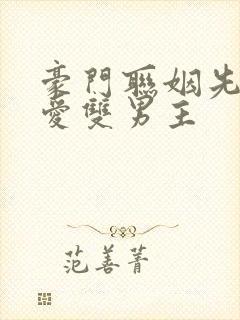 豪門聯姻先
愛雙男主
范善菁